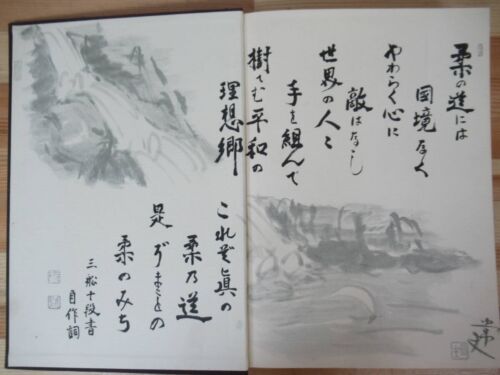 柔の道には
国境なく
やわらぐ心に
敵はなし
世界の人と
手を組んで
樹てむ平和の
理想郷
これぞ眞の
柔乃道
是ぞまことの
柔のみち
三船十段書
自作詞